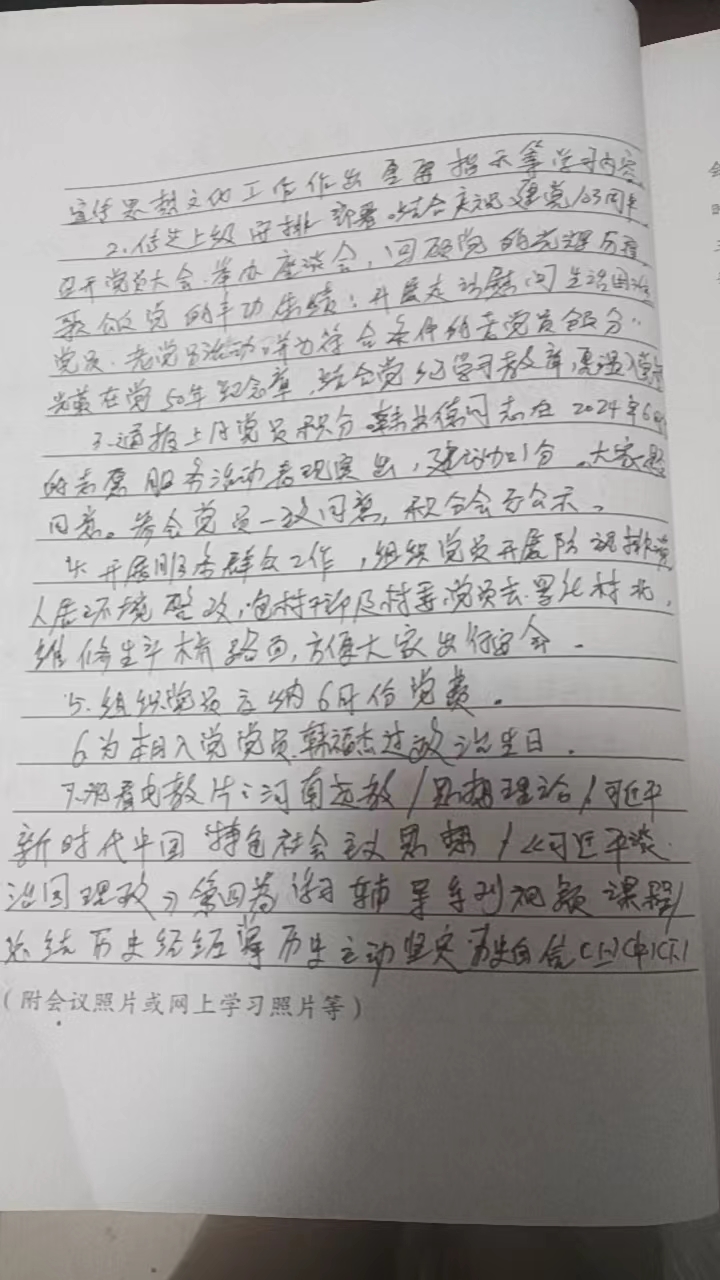 宣传思想文化工作作出重要指示等学习内容
2.传达上级安排部署。结合庆祝建党103周年
召开党员大会、举办座谈会，回顾党的光辉历程
歌颂党的丰功伟绩；开展走访慰问生活困难
党员、老党员活动；并为符合条件的老党员颁发“
光荣在党50年”纪念章，结合党纪学习教育，重温入党
3.通报上月党员积分。韩 德同志在2024年6月
的志愿服务活动表现突出，建议加1分。大家
同意。参会党员一致同意，积分会后公示。
4.开展服务群众工作，组织党员开展 排
人居环境整改，包村干部及村委、党员去 村北，
维修生产桥路面，方便大家出行安全。
5.组织党员交纳6月份党费。
6.为本月入党党员韩福杰过政治生日。
7.观看电教片：河南远教/思想理论/习近平
新时代中国特色社会主义思想/《习近平谈
治国理政》第四卷学习辅导系列视频课程/
总结历史经验 历史主动坚定历史自信(上)(中)(下)
（附会议照片或网上学习照片等）